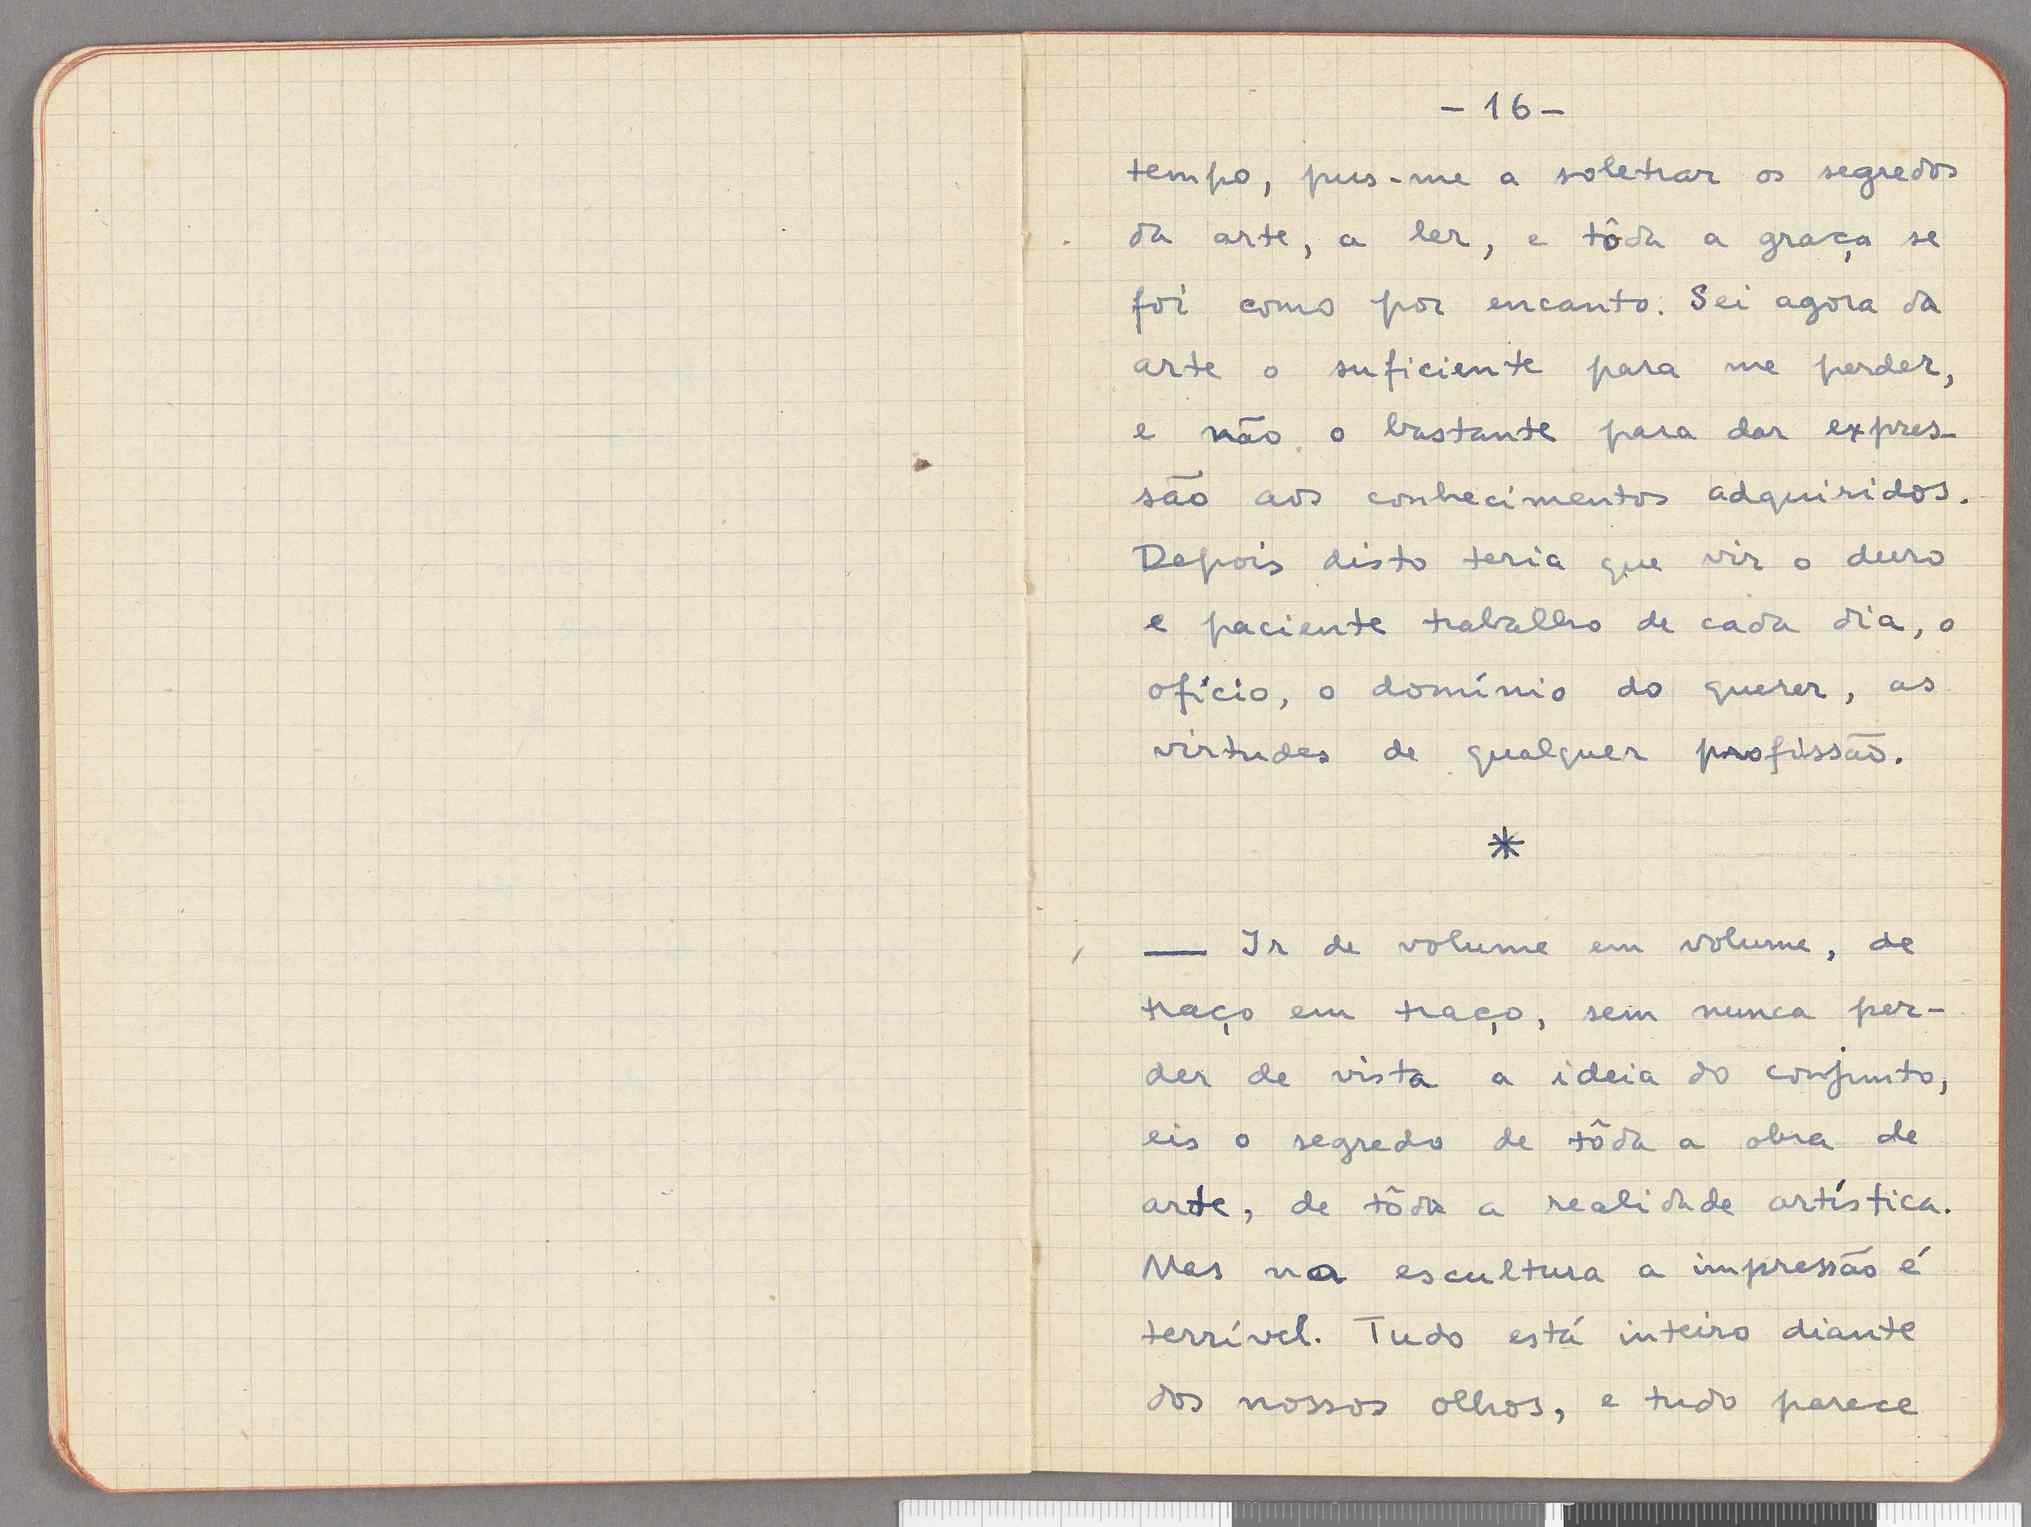 - 16 -
tempo, pus-me a soletrar os segredos
da arte, a ler, e tôda a graça se
foi como por encanto. Sei agora da
arte o suficiente para me perder,
e não o bastante para dar expres-
são aos conhecimentos adquiridos.
Depois disto teria que vir o duro
e paciente trabalho de cada dia, o
ofício, o domínio do querer, as
virtudes de qualquer profissão.
*
— Ir de volume em volume, de
traço em traço, sem nunca per-
der de vista a ideia do conjunto,
eis o segredo de tôda a obra de
arte, de tôda a realidade artística.
Mas na escultura a impressão é
terrível. Tudo está inteiro diante
dos nossos olhos, e tudo parece